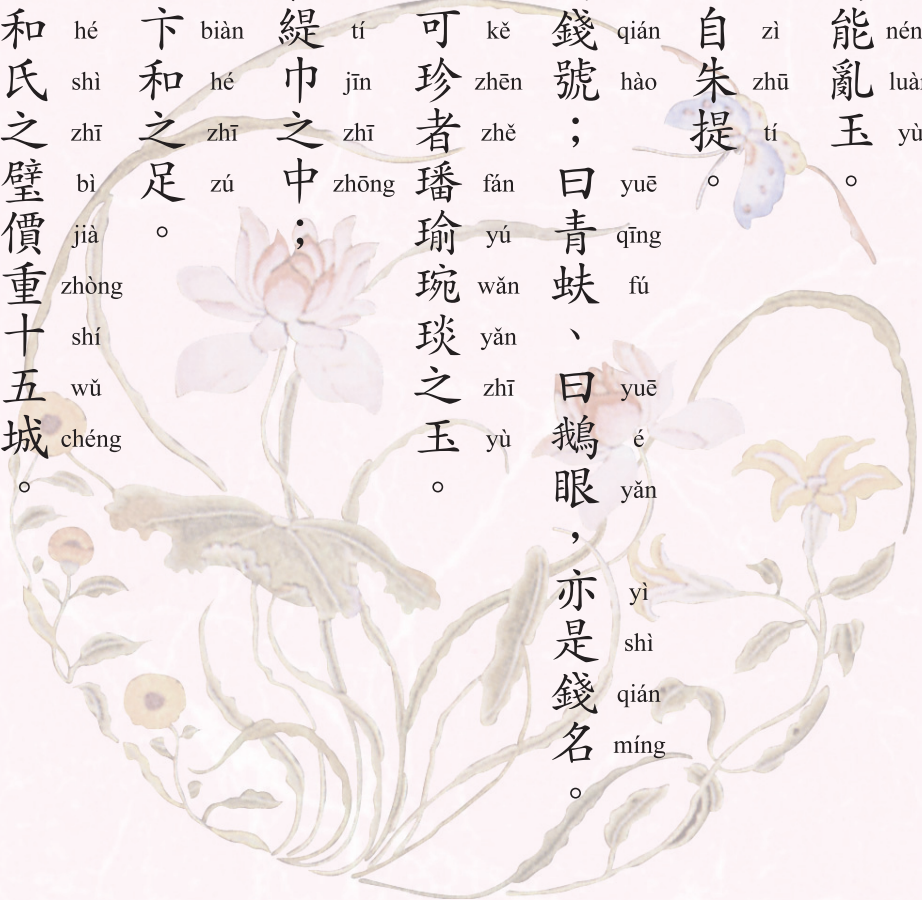 能亂玉。
néng luàn yù
自朱提。
zì zhū tí
錢號；曰青蚨、曰鵝眼，亦是錢名。
qián hào yuē qīng fú yuē é yǎn yì shì qián míng
可珍者璠瑜琬琰之玉。
kě zhēn zhě fán yú wǎn yǎn zhī yù
緹巾之中；
tí jīn zhī zhōng
卞和之足。
biàn hé zhī zú
和氏之璧價重十五城。
hé shì zhī bì jià zhòng shí wǔ chéng